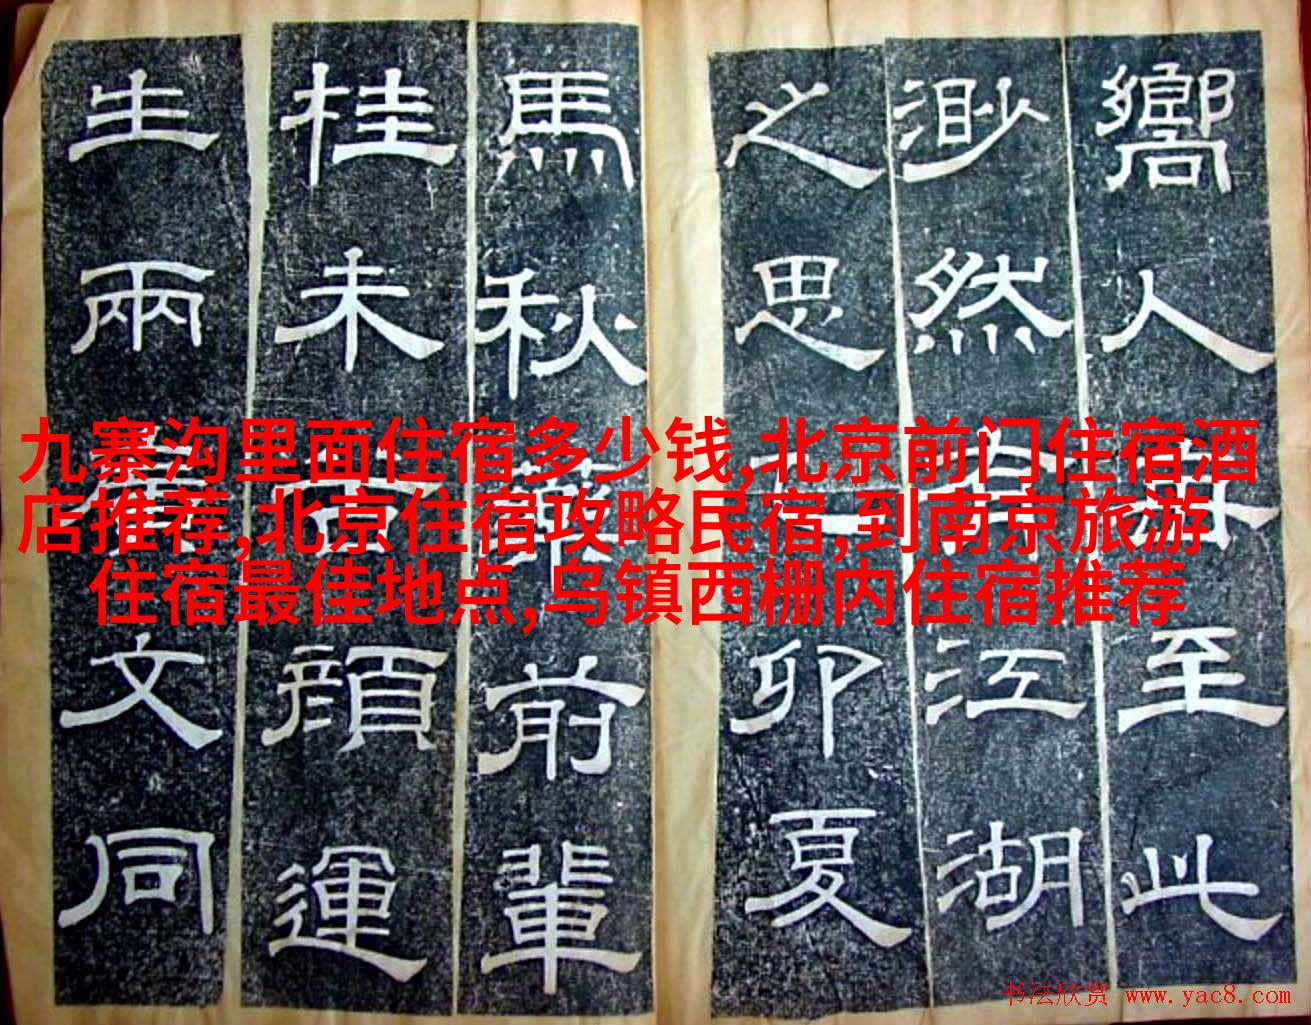 嚮人至此
渺然江湖
之思卯夏
馬秋前輩
桂未顏運
生兩文同
九寨沟里面住宿多少钱,北京前门住宿酒
店推荐,北京住宿攻略民宿,到南京旅游
住宿最佳地点,乌镇西栅内住宿推荐
书法欣赏 www.yac8.com